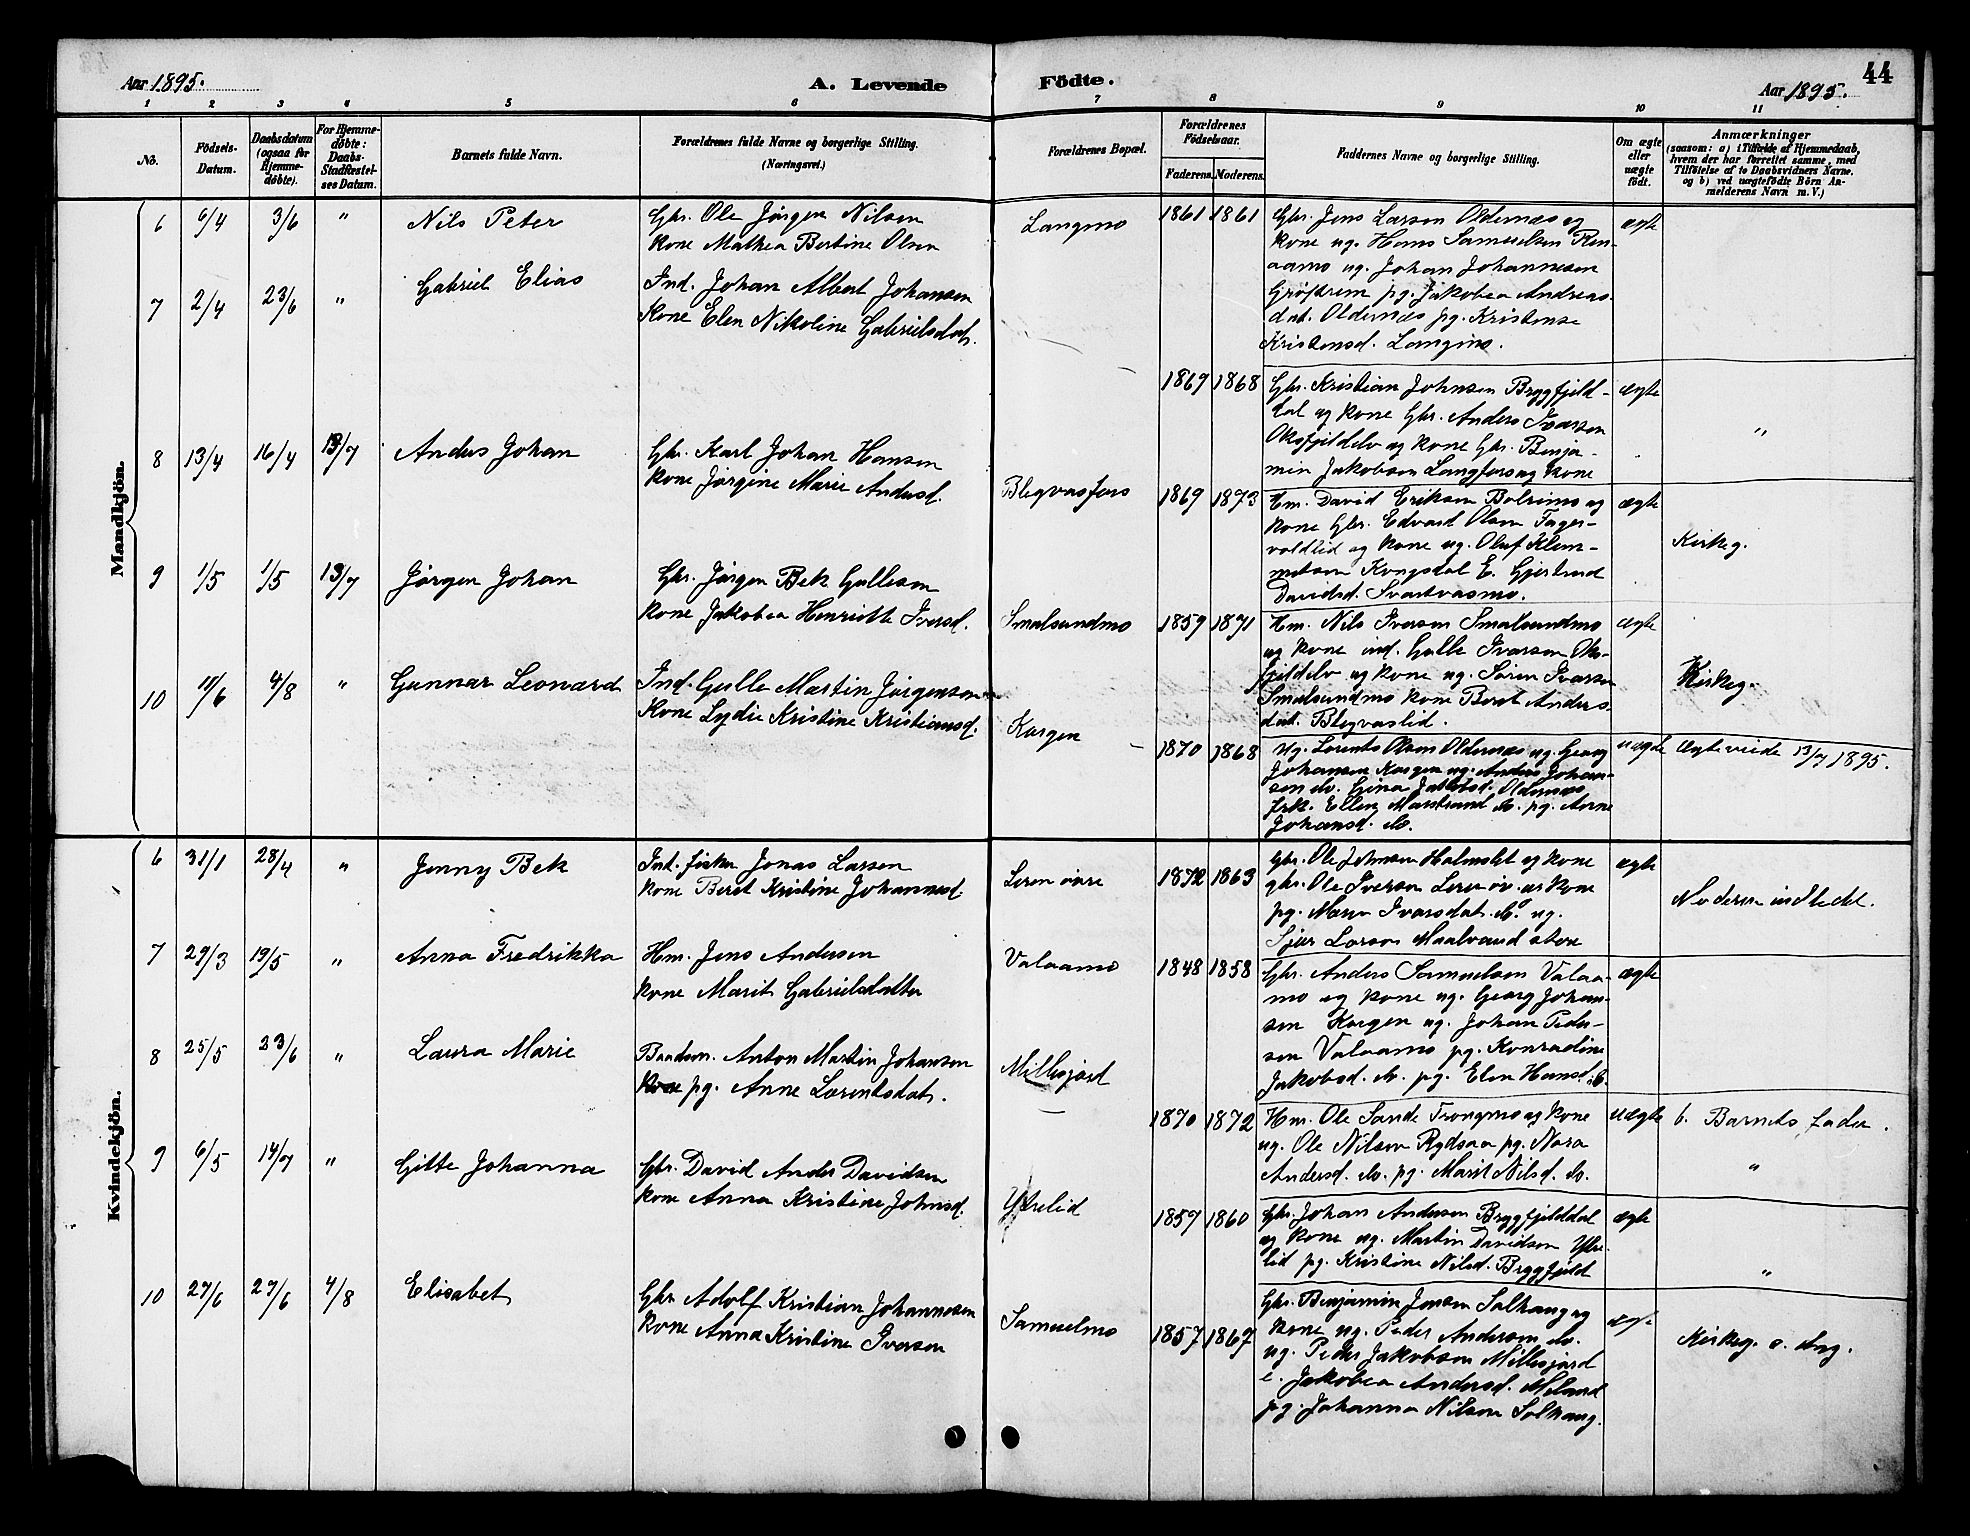 Aar 1895.
A. Levende Födte.
Aar 1895.
44
1 2 3 4 5 6 7 8 9 10 11
No.
Födsels-Datum.
Daabsdatum (ogsaa for Hjemmedöbte).
For Hjemmedöbte: Daabs-Stadfæstelses Datum.
Barnets fulde Navn.
Forældrenes fulde Navne og borgerlige Stilling.
(Næringsvei.)
Forældrenes Bopæl.
Forældrenes Födselsaar.
Faderens. Moderens.
Faddernes Navne og borgerlige Stilling.
Om ægte eller uægte födt.
Anmærkninger
(saasom: a) i Tilfælde af Hjemmedaab,
hvem der har forrettet samme, med
Tilföielse af to Daabsvidners Navne.
og b) ved uægtefödte Börn Anmelderens Navn m. V.)
Mandkjön.
6 6/4 3/6 " Nils Peter
Gbr. Ole Jørgen Nilsen
kone Mathea Bertine Olsen
Langmo 1861 1861
Gbr. Jens Larsen Oldernæs og
kone ug. Hans Samuelsen Ren-
aamo ug. Johan Johannesen
Grøftrem pg. Jakobea Andreas
dat. Oldernæs pg. Kristense
Kristensd. Langmo.
ægte
7 2/4 23/6 " Gabriel Elias
Ind. Johan Albert Johansen
Kone Elen Nikoline Gabrielsdat.
1869 1868
Gbr. Kristian Johnsen Bryggfjeld-
dal og kone Gbr. Anders Ivarsen
Oksfjeldelv og kone Gbr. Benja-
min Jakobsen Langfors og kone
ægte "
8 13/4 16/4 13/7 Anders Johan
Gbr. Karl Johan Hansen
kone Jørgine Marie Andersd.
Blegvasfors 1869 1873
Hm. David Eriksen Bolrimo og
kone Gbr. Edvard Olsen Fager-
voldlid og kone ug. Oluf Klem-
metsen Kongsdal E. Gjertrud
Davidsd. Svartvasmo.
ægte Kirkeg.
9 1/5 1/5 13/7 Jørgen Johan
Gbr. Jørgen Bek Gullesen
kone Jakobea Henriette Iversd.
Smalsundmo 1859 1871
Hm. Nils Iversen Smalsundmo
og kone ind. Gulle Ivarsen Oks-
fjeldelv og kone ug. Søren Ivarsen
Smalsundmo kone Beret Anders
dat. Blegvaslid.
ægte Kirkeg.
10 11/6 4/8 " Gunnar Leonard
Ind. Gulle Martin Jørgensen
Kone Lydie Kristine Kristiansd.
Korgen 1870 1868
ug. Lorents Olsen Oldernæs ug. Georg
Johansen Korgen ug. Anders Johan-
sen do. Gina Jakobsd. Oldernæs
frk. Ellen Marstrand do. pg. Anne
Johansd. do.
uægte Ægteviede 13/7 1895.
Kvindekjön.
6 31/1 28/4 " Jenny Bek
Ind. fisker Jonas Larsen
kone Beret Kristine Johannesd.
Leren øvre 1872 1863
Gbr. Ole Johnsen Holmslet og kone
gbr. Ole Iversen Leren øv. og kone
pg. Maren Ivarsdat. do. ug.
Sjur Larsen Maalvand store
ægte Moderen indledet.
7 29/3 19/5 " Anna Fredrikka
Hm. Jens Andersen
kone Marit Gabrielsdatter
Valaamo 1848 1858
Gbr. Anders Samuelsen Valaa-
mo og kone ug. Georg Johan-
sen Korgen ug. Johan Peder-
sen Valaamo pg. Konradine
Jakobsd. do. pg. Elen Hansd. do.
ægte
8 25/5 23/6 " Laura Marie
Baadsm. Anton Martin Johansen
pg. Anne Lorentsdat.
Millesjord 1870 1872
Hm. Ole Sande Trongmo og kone
ug. Ole Nilsen Rydsaa pg. Nora
Andersd. do. pg. Marit Nilsd. do.
uægte b. Barnets Fader.
"
9 6/5 14/7 " Gitte Johanna
Gbr. David Ander Davidsen
kone Anna Kristine Johnsd.
Ytrelid 1857 1860
Gbr. Johan Andersen Bryggfjelddal
og kone ug. Martin Davidsen Ytre-
lid pg. Kristine Nilsd. Bryggfjeld
ægte "
10 27/6 27/6 4/8 Elisabet
Gbr. Adolf Kristian Johannesen
kone Anna Kristine Iversen
Samuelmo 1857 1867
Gbr. Benjamin Jensen Solhaug og
kone ug. Peder Andersen do.
ug. Peder Jakobsen Millesjord
E. Jakobea Andersd. Moland
pg. Johanna Nilsen Solhaug.
ægte Kirkeg. s. Ang.